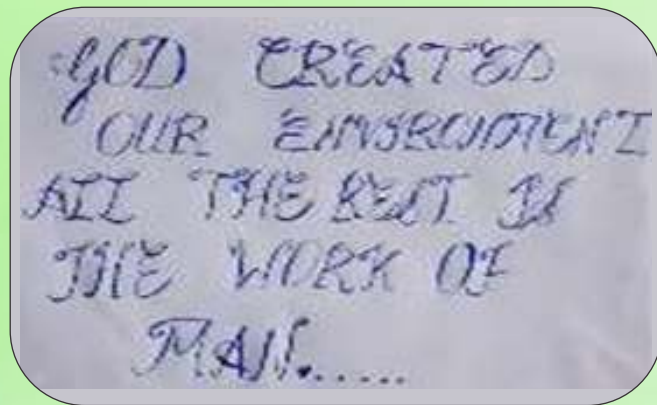 GOD CREATED
OUR ENVIRONMENT
ALL THE REST IS
THE WORK OF
MAN......